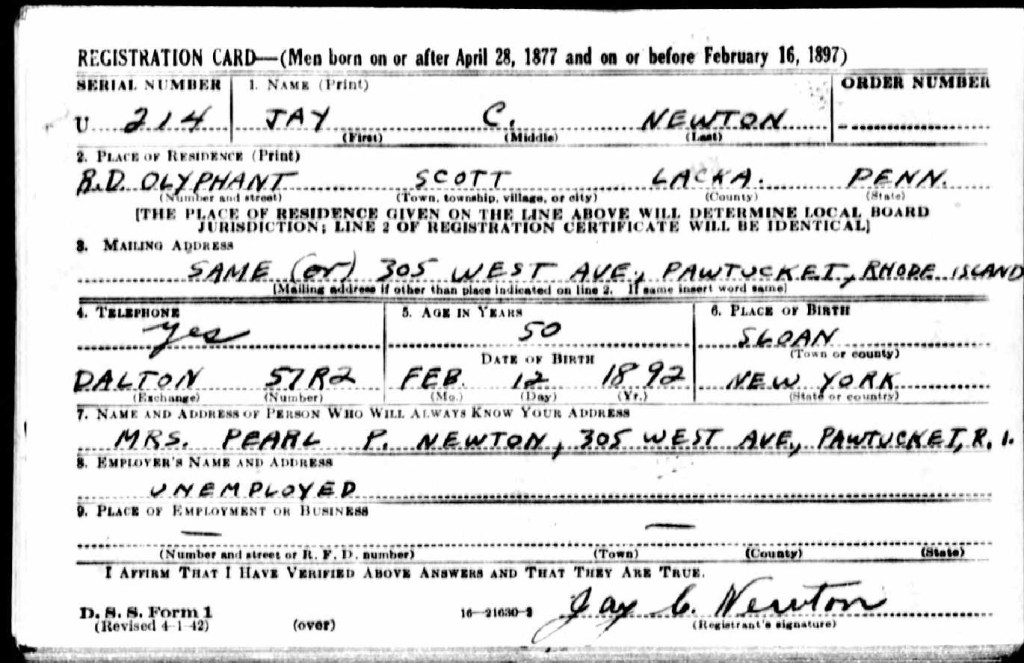 REGISTRATION CARD—(Men born on or after April 28, 1877 and on or before February 16, 1897)
SERIAL NUMBER 1. NAME (Print) ORDER NUMBER
U 214 JAY C. NEWTON
(First) (Middle) (Last)
2. PLACE OF RESIDENCE (Print)
R.D. OLYPHANT SCOTT LACKA. PENN.
(Number and street) (Town, township, village, or city) (County) (State)
[THE PLACE OF RESIDENCE GIVEN ON THE LINE ABOVE WILL DETERMINE LOCAL BOARD
JURISDICTION; LINE 2 OF REGISTRATION CERTIFICATE WILL BE IDENTICAL]
3. MAILING ADDRESS
SAME (or) 305 WEST AVE., PAWTUCKET, RHODE ISLAND
[Mailing address if other than place indicated on line 2. If same insert word same]
4. TELEPHONE 5. AGE IN YEARS 6. PLACE OF BIRTH
Yes 50 SLOAN
DATE OF BIRTH (Town or county)
DALTON 57R2 FEB. 12 1892 NEW YORK
(Exchange) (Number) (Mo.) (Day) (Yr.) (State or country)
7. NAME AND ADDRESS OF PERSON WHO WILL ALWAYS KNOW YOUR ADDRESS
MRS. PEARL P. NEWTON, 305 WEST AVE., PAWTUCKET, R. I.
8. EMPLOYER'S NAME AND ADDRESS
UNEMPLOYED
9. PLACE OF EMPLOYMENT OR BUSINESS
— —
(Number and street or R. F. D. number) (Town) (County) (State)
I AFFIRM THAT I HAVE VERIFIED ABOVE ANSWERS AND THAT THEY ARE TRUE.
D. S. S. Form 1 16—21630-2 Jay C. Newton
(Revised 4-1-42) (over) (Registrant's signature)